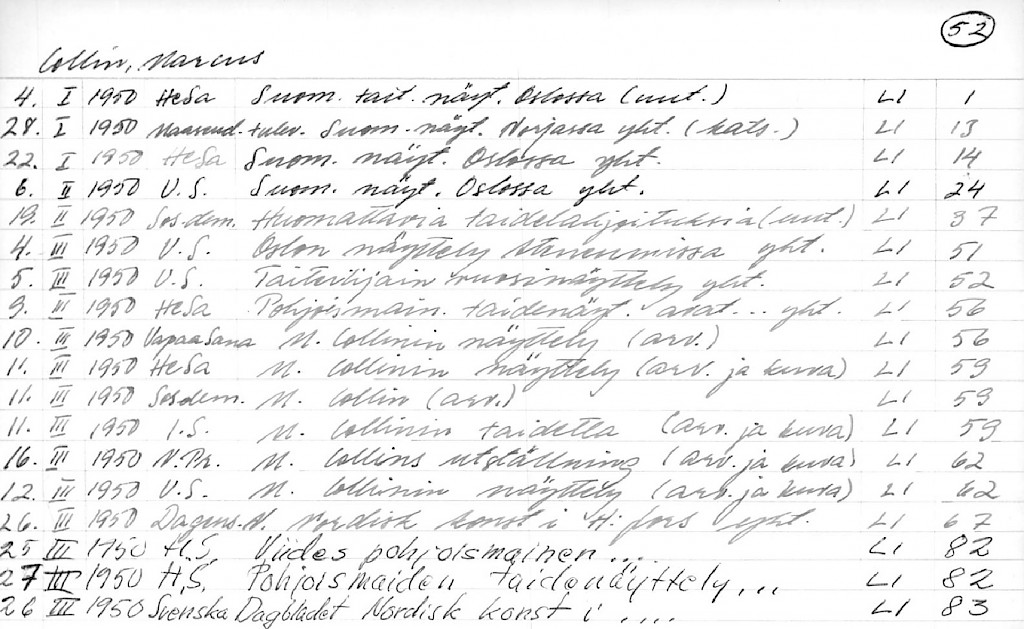 52
Collin, Marcus
4. I 1950 HeSa Suom. tait. näyt. Oslossa (uut.) LI 1
28. I 1950 Maaseud. tulev. Suom. näyt. Norjassa yht. (kats.) LI 13
22. I 1950 HeSa Suom. näyt. Oslossa yht. LI 14
6. II 1950 U.S. Suom. näyt. Oslossa yht. LI 24
19. II 1950 Sos.dem. Huomattavia taidelahjoituksia (uut.) LI 37
4. III 1950 U.S. Oslon näyttely Ateneumissa yht. LI 51
5. III 1950 U.S. Taiteilijain vuosinäyttely yht. LI 52
9. III 1950 HeSa Pohjoismain. taidenäyt. avat... yht. LI 56
10. III 1950 Vapaa Sana M. Collinin näyttely (arv.) LI 56
11. III 1950 HeSa M. Collinin näyttely (arv. ja kuva) LI 59
11. III 1950 Sosdem. M. Collin (arv.) LI 59
11. III 1950 I.S. M. Collinin taidetta (arv. ja kuva) LI 59
16. III 1950 N.Pr. M. Collins utställning (arv. ja kuva) LI 62
12. III 1950 U.S. M. Collinin näyttely (arv. ja kuva) LI 62
26. III 1950 Dagens N. Nordisk konst i H:fors yht. LI 67
25 III 1950 H.S. Viides pohjoismainen ... LI 82
27 III 1950 H.S. Pohjoismaiden taidenäyttely... LI 82
26 III 1950 Svenska Dagbladet Nordisk konst i .... LI 83